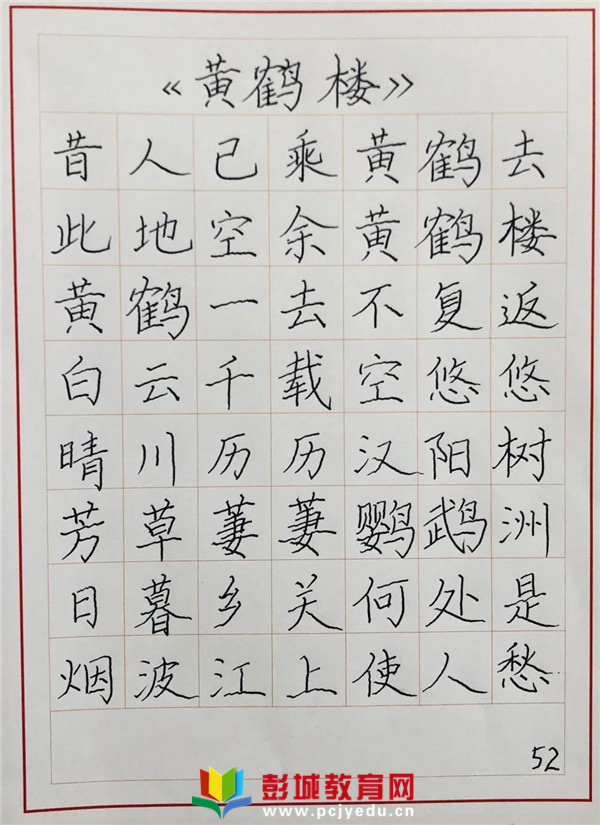 《黄鹤楼》
昔人已乘黄鹤去
此地空余黄鹤楼
黄鹤一去不复返
白云千载空悠悠
晴川历历汉阳树
芳草萋萋鹦鹉洲
日暮乡关何处是
烟波江上使人愁
52
彭城教育网
www.pcjyedu.cn